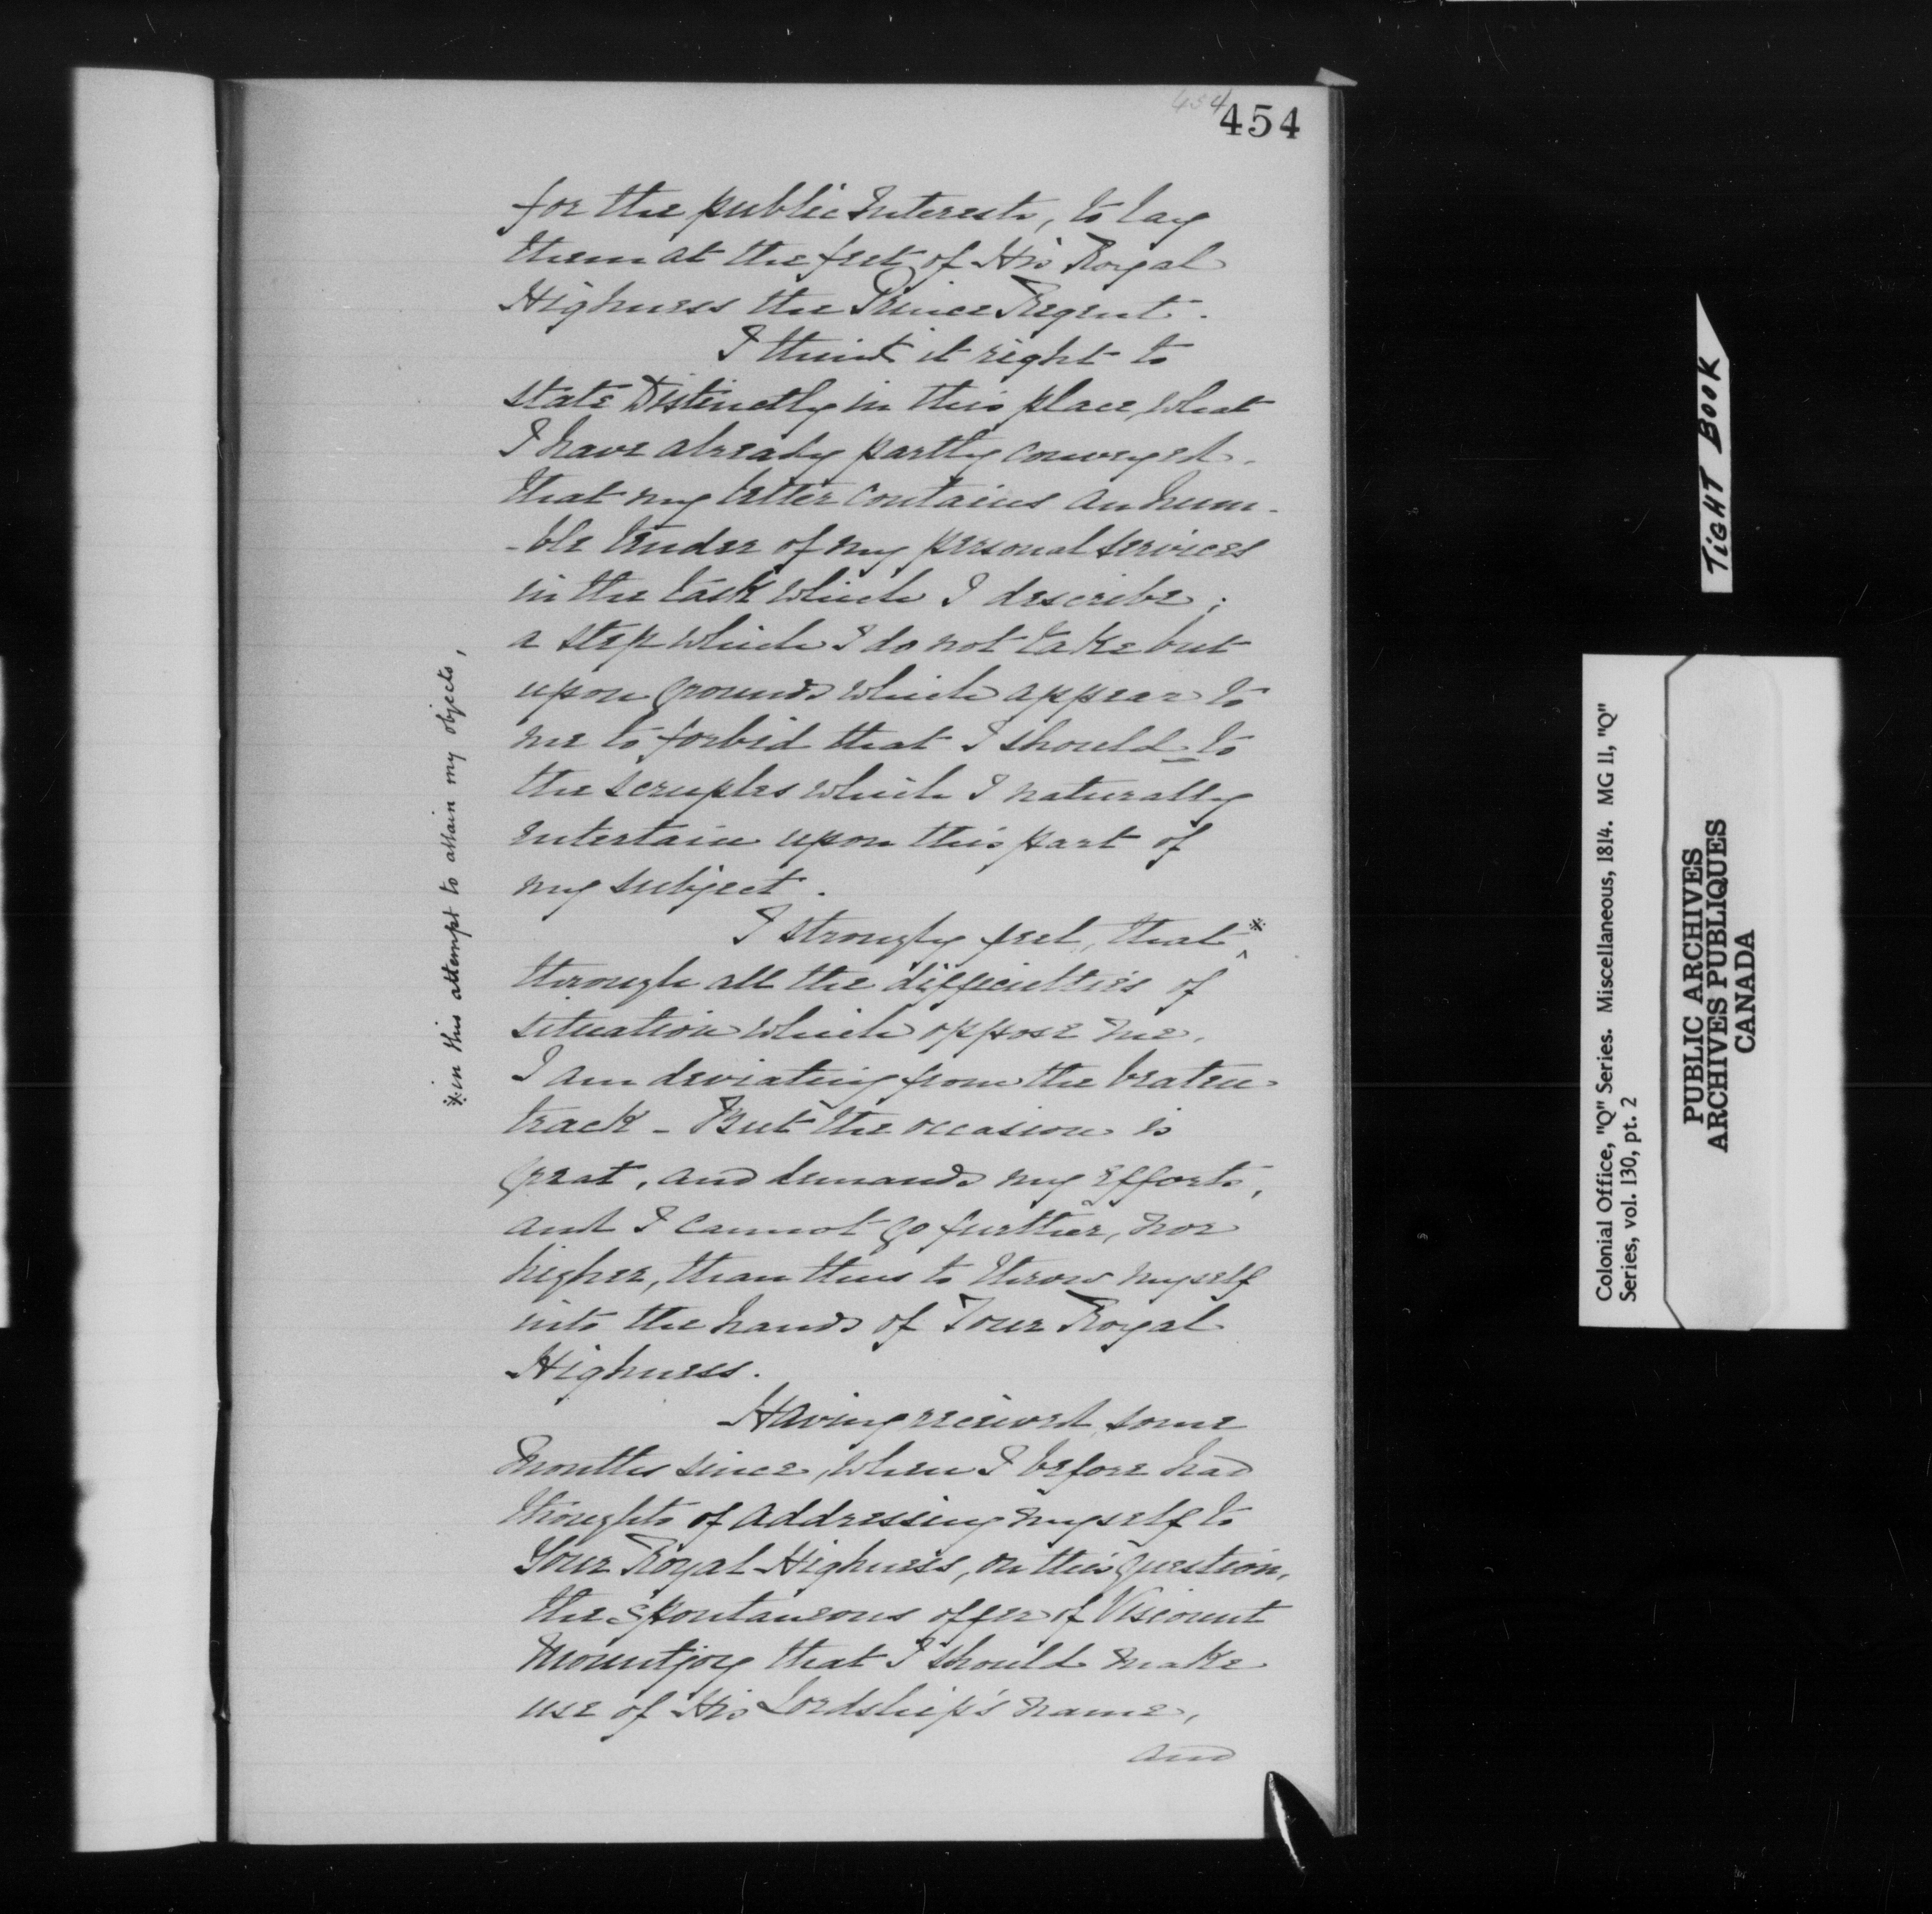 454
454
for the public Interests, to lay
them at the feet of His Royal
Highness the Prince Regent.
I think it right to
state Distinctly in this place, what
I have already partly conveyed.
that my letter contains an hum-
-ble tender of my personal services
in the task which I describe;
a step which I do not take but
upon grounds which appear to
me to forbid that I should to
the scruples which I naturally
entertain upon this part of
my subject.
I strongly feel, that ※
through all the difficulties of
situation which oppose me,
I am deviating from the beaten
track - But the occasion is
great, and demands my Efforts,
and I cannot go further, nor
higher, than thus to throw myself
into the hands of Your Royal
Highness.
Having received some
months since, when I before had
thoughts of addressing myself to
Your Royal Highness, on this question,
the spontaneous offer of Viscount
Mountjoy that I should make
use of His Lordship's name,
and
※ in this attempt to attain my objects,
TIGHT BOOK
Colonial Office, "Q" Series. Miscellaneous, 1814. MG 11, "Q"
Series, vol. 130, pt. 2
PUBLIC ARCHIVES
ARCHIVES PUBLIQUES
CANADA